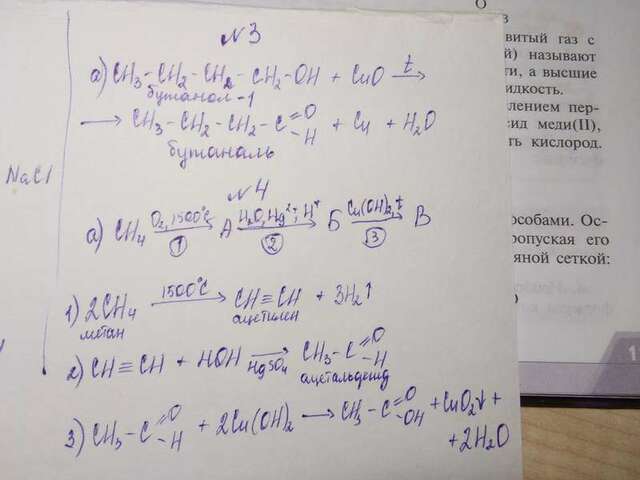 №3
а) CH₃-CH₂-CH₂-CH₂-OH + CuO t→
бутанол-1
→ CH₃-CH₂-CH₂-C=O-H + Cu + H₂O
бутаналь
NaCl
№4
а) CH₄ O₂,1500°C→ А H₂O,Hg²⁺,H⁺→ Б Cu(OH)₂,t→ В
1 2 3
1) 2CH₄ 1500°C→ CH≡CH + 3H₂↑
метан ацетилен
2) CH≡CH + HOH HgSO₄→ CH₃-C=O-H
ацетальдегид
3) CH₃-C=O-H + 2Cu(OH)₂ → CH₃-C=O-OH + CuO₂↓ +
+ 2H₂O
О
витый газ с
й) называют
ти, а высшие
идкость.
лением пер-
сид меди(II),
ть кислород.
особами. Ос-
ропуская его
яной сеткой:
1